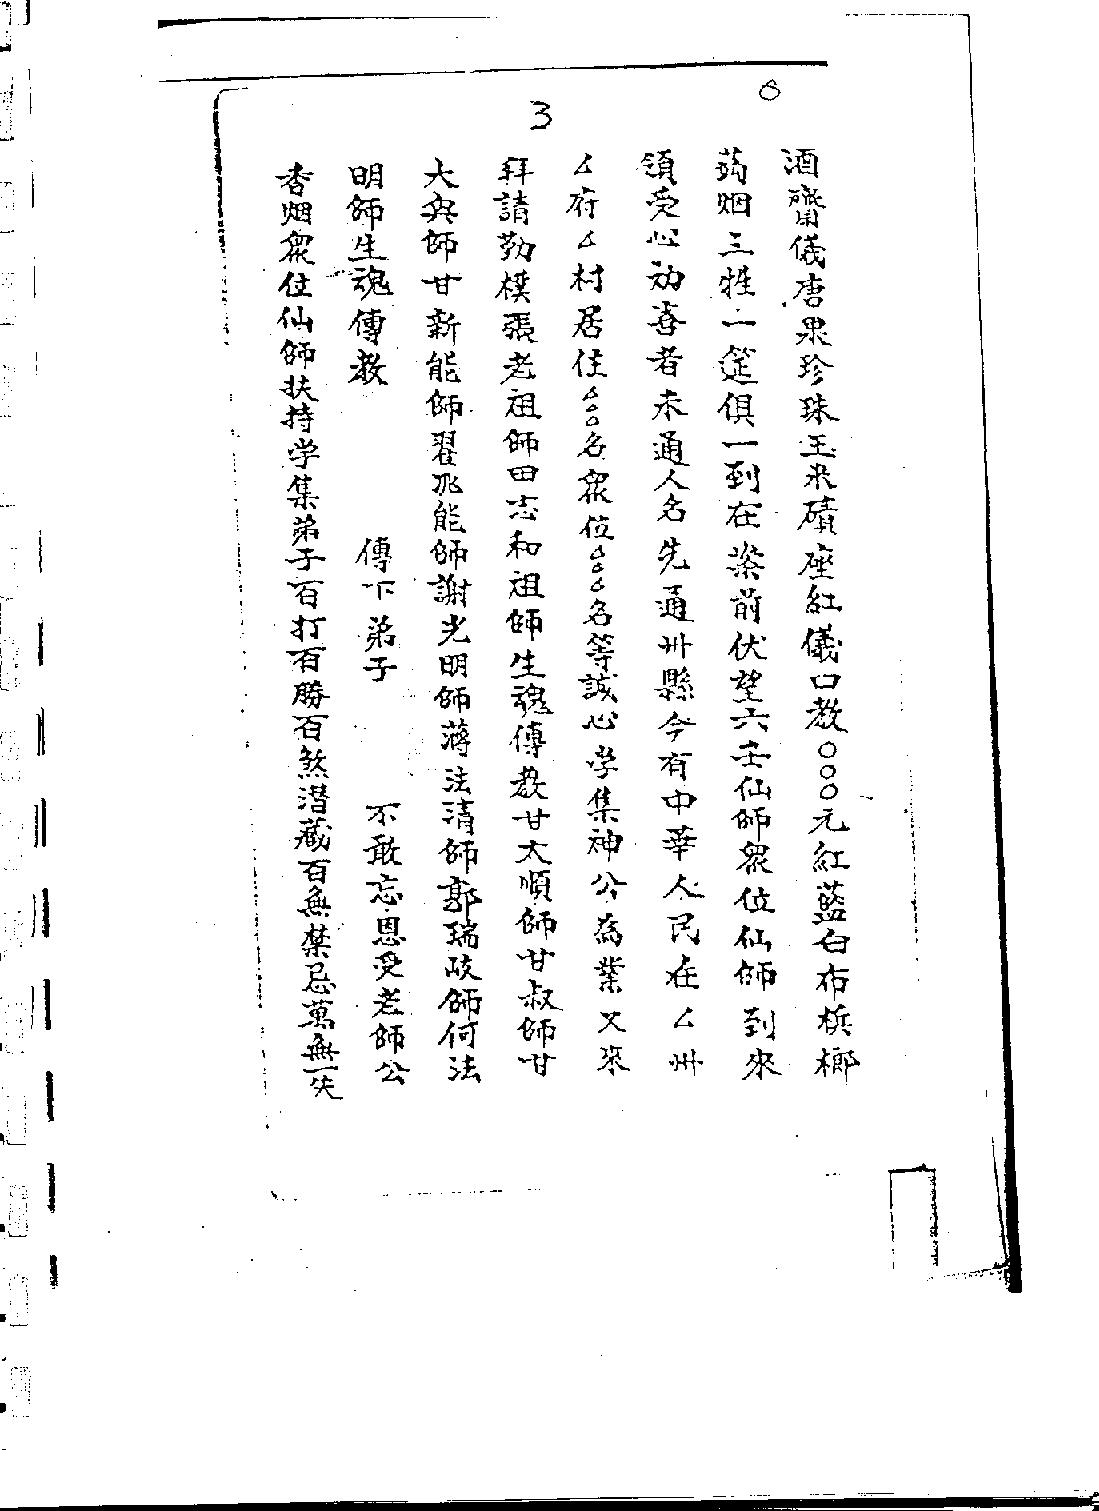 6
3
酒齋儀唐果珍珠玉米磧座紅儀口教○○○元紅藍白布梹榔
蒟烟三牲一筵俱一到在案前伏望六壬仙師眾位仙師到來
領受心功喜者未通人名先通卅縣今有中華人民在厶卅
厶府厶村居住厶厶厶名眾位厶厶厶名等誠心学集神公為業又來
拜請勤樸張老祖師田志和祖師生魂傳教甘大順師甘叔師甘
大興師甘新能師翟兆能師謝光明師蔣法清師郭瑞岐師何法
明師生魂傳教 傳下弟子 不敢忘恩受老師公
香烟眾位仙師扶持学集弟子百打百勝百煞潜藏百無禁忌萬無一失